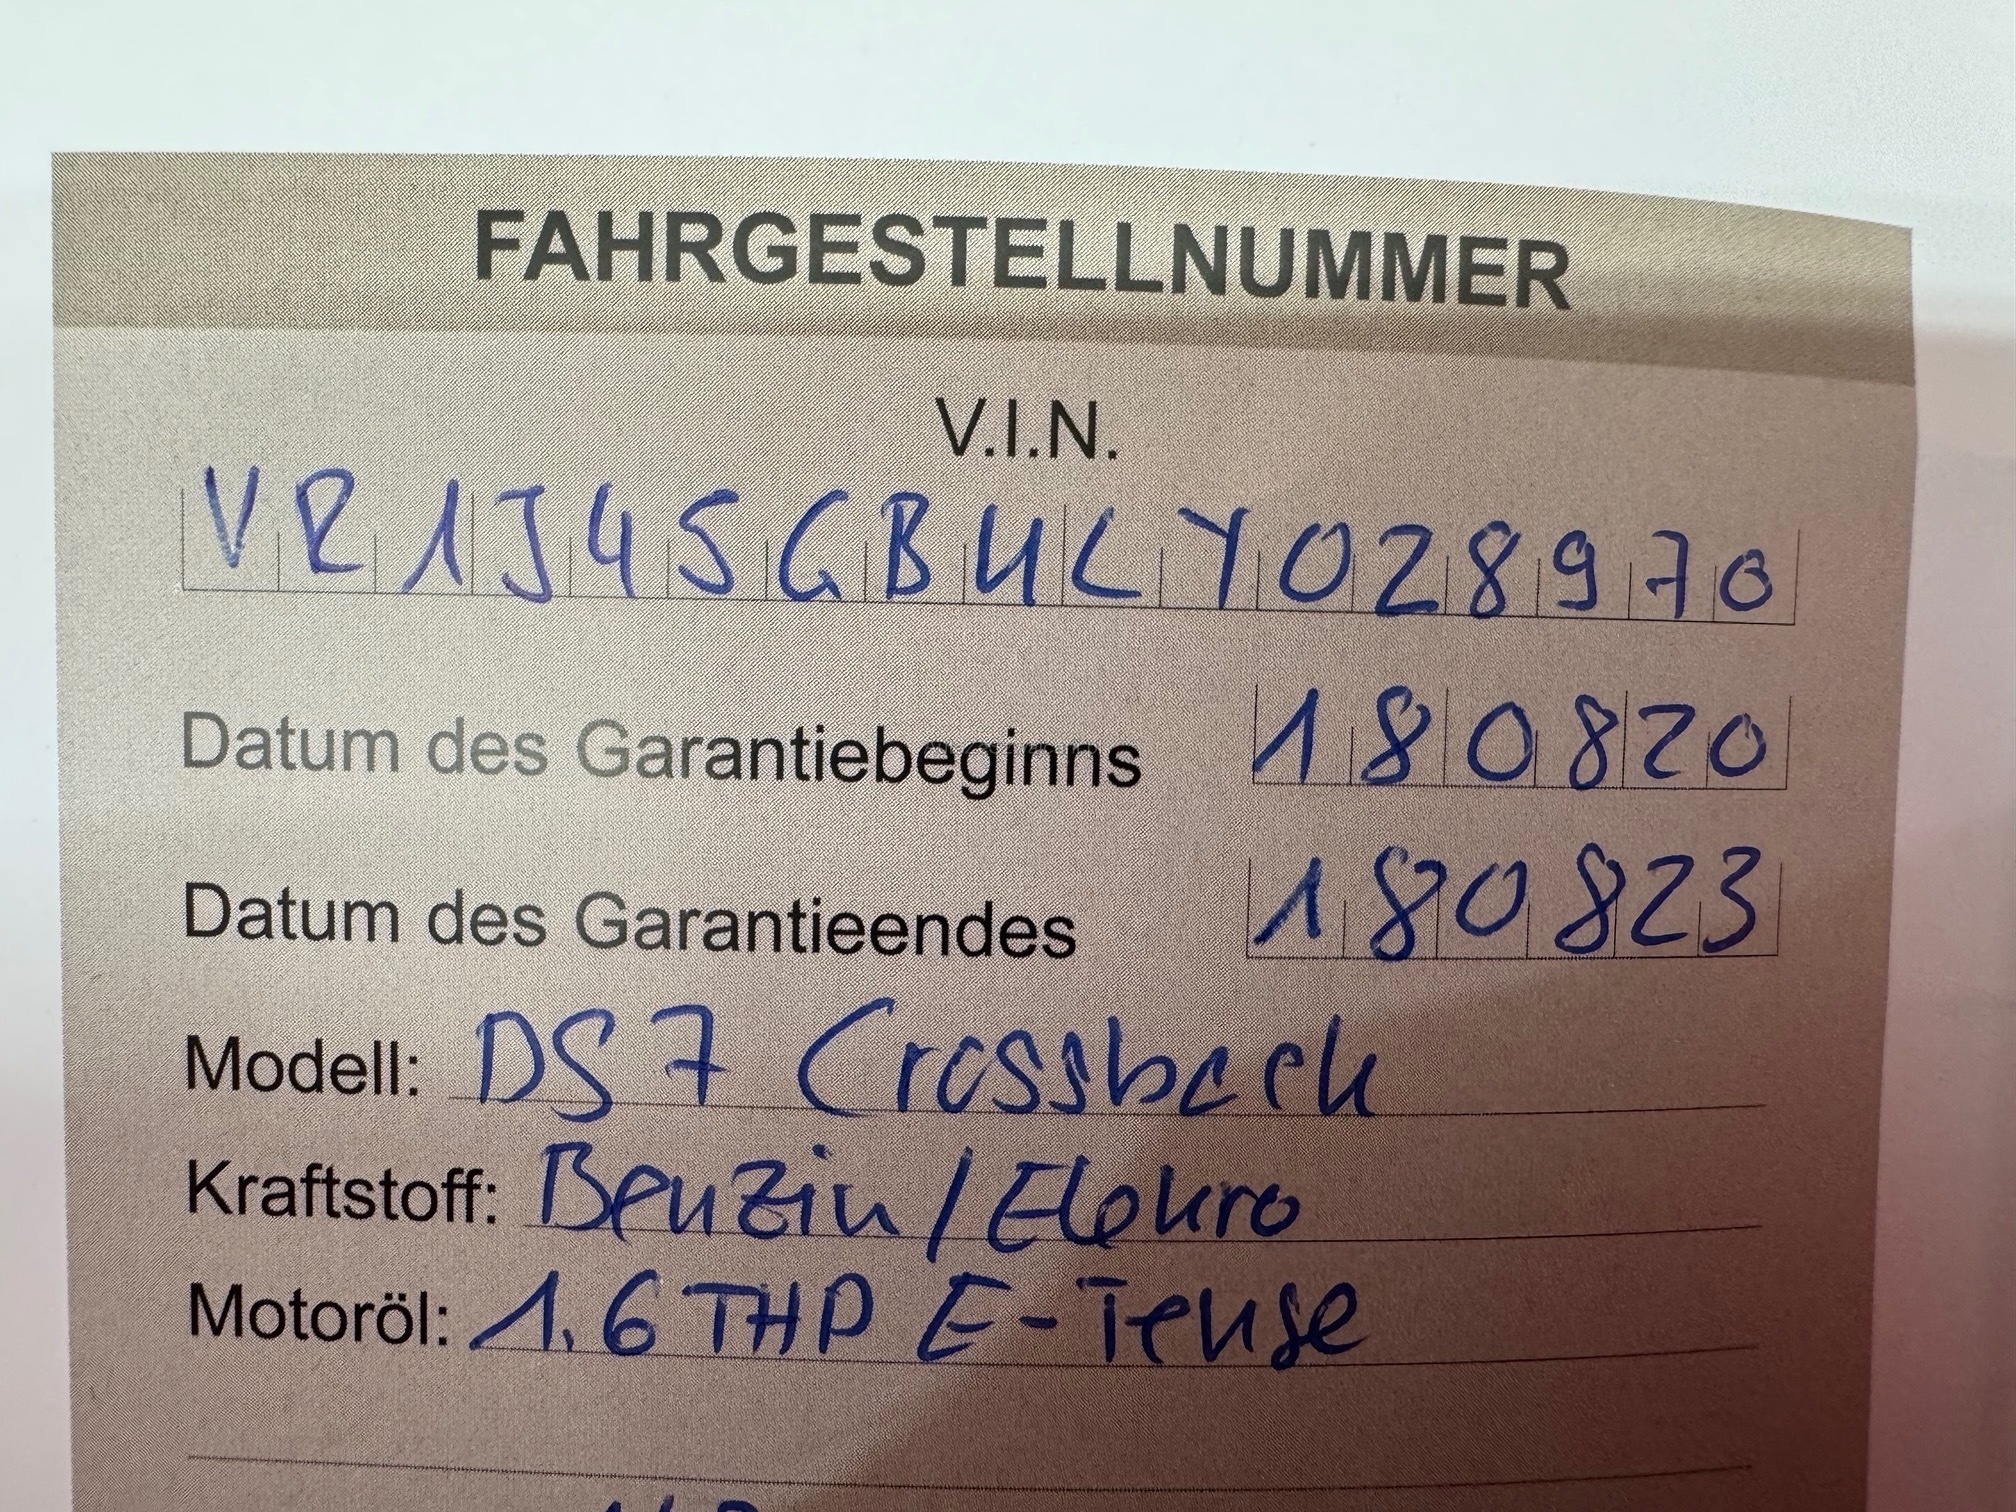 FAHRGESTELLNUMMER
V.I.N.
VR1J45GBULY028970
Datum des Garantiebeginns 180820
Datum des Garantieendes 180823
Modell: DS 7 Crossback
Kraftstoff: Benzin/Elekro
Motoröl: 1.6 THP E-Tense